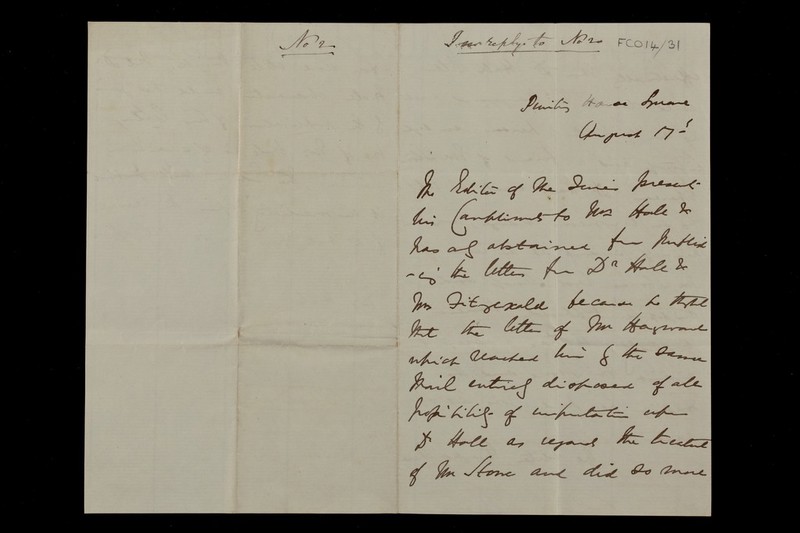 No 2
In reply to No 2
FCO14/31
Printing House Square
August 17t
The Editor of the Times presents
his Compliments to Mrs Hall &
has only abstained from publish
-ing the letter from Dr Hall &
Mr Fitzgerald because he thght
that the letter of Mr Hayward
which reached him by the same
Mail entirely disposed of all
possibility of imputation upon
Dr Hall as regards the treatment
of Mr Stone and did so more